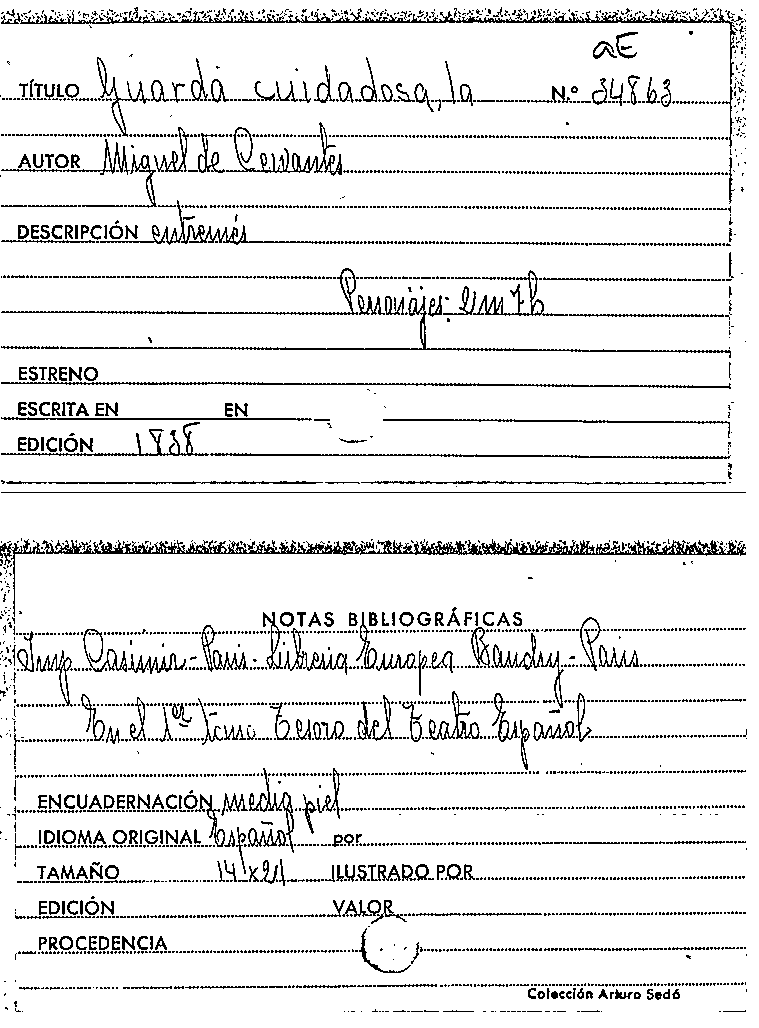 aE
TÍTULO Guarda cuidadosa, la N.º 34863
AUTOR Miguel de Cervantes
DESCRIPCIÓN entremés
Personajes: 2m 7h
ESTRENO
ESCRITA EN EN
EDICIÓN 1838
NOTAS BIBLIOGRÁFICAS
Imp Casimir - Paris - Libreria Europea Baudry - Paris
En el 1er tomo Tesoro del Teatro Español
ENCUADERNACIÓN media piel
IDIOMA ORIGINAL Español por
TAMAÑO 14 x 21 ILUSTRADO POR
EDICIÓN VALOR
PROCEDENCIA
Colección Arturo Sedó